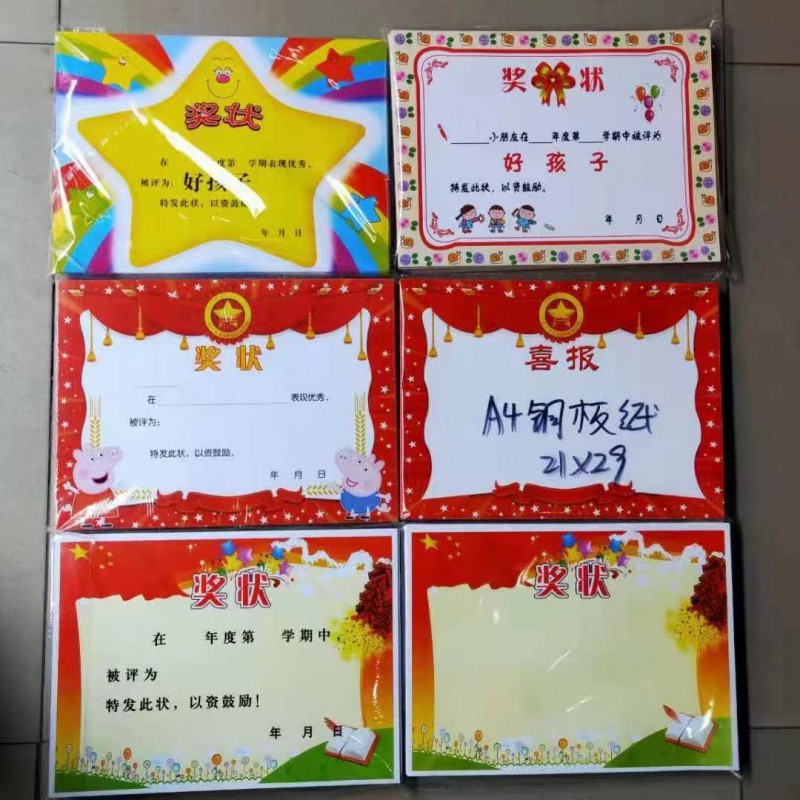 奖状
在 年度第 学期表现优秀,
被评为: 好孩子
特发此状、以资鼓励
年 月 日
奖 状
小朋友在 年度第 学期中被评为
好 孩 子
特发此状、以资鼓励。
年 月 日
奖 状
在 表现优秀,
被评为:
特发此状、以资鼓励。
年 月 日
喜报
A4铜板纸
21X29
奖 状
在 年度第 学期中,
被评为
特发此状,以资鼓励!
年 月 日
奖 状